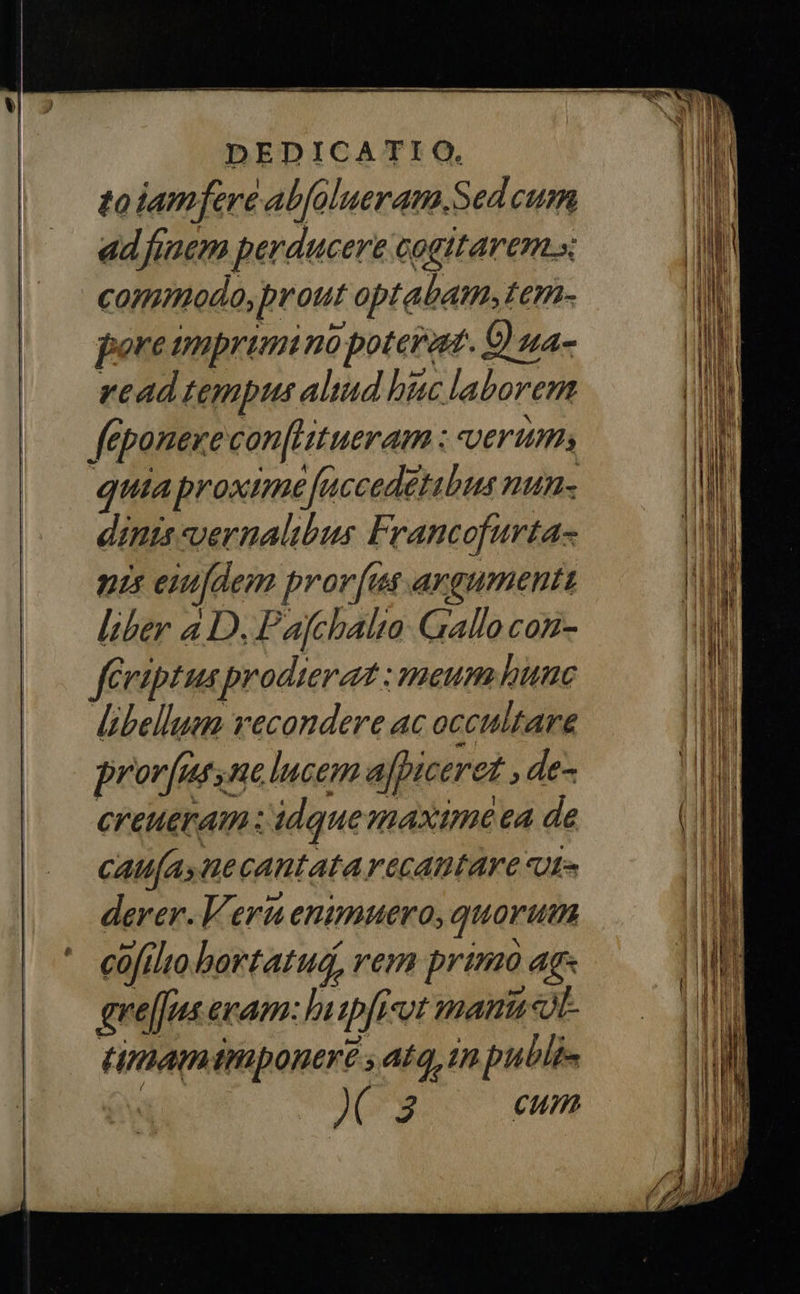 DEDICATIO.
to iam ferè abſolueram. Sed cum
ad finem perducere cogitarem:
commodo, prout optabam, tem-
pore imprimi nõ poterat. Qua-
re ad tempus aliud huc laborem
ſeponere conſtitueram: verùm,
quia proximè ſuccedẽtibus nun-
dinis vernalibus Francofurta-
nis eiuſdem prorſus argumenti
liber à D. Paſchalio Gallo con-
ſcriptus prodierat: meum hunc
libellum recondere ac occultare
prorſus, ne lucem aſpiceret, de-
creueram: idque maximè ea de
cauſa, ne cantata recantare vi-
derer. Verũ enimuero, quorum
cõſilio hortatuq́, rem primò ag-
greſſus eram: hi ipſi vt manũ vl-
timam imponerẽ, atq́, in publi-
)( 3 cum